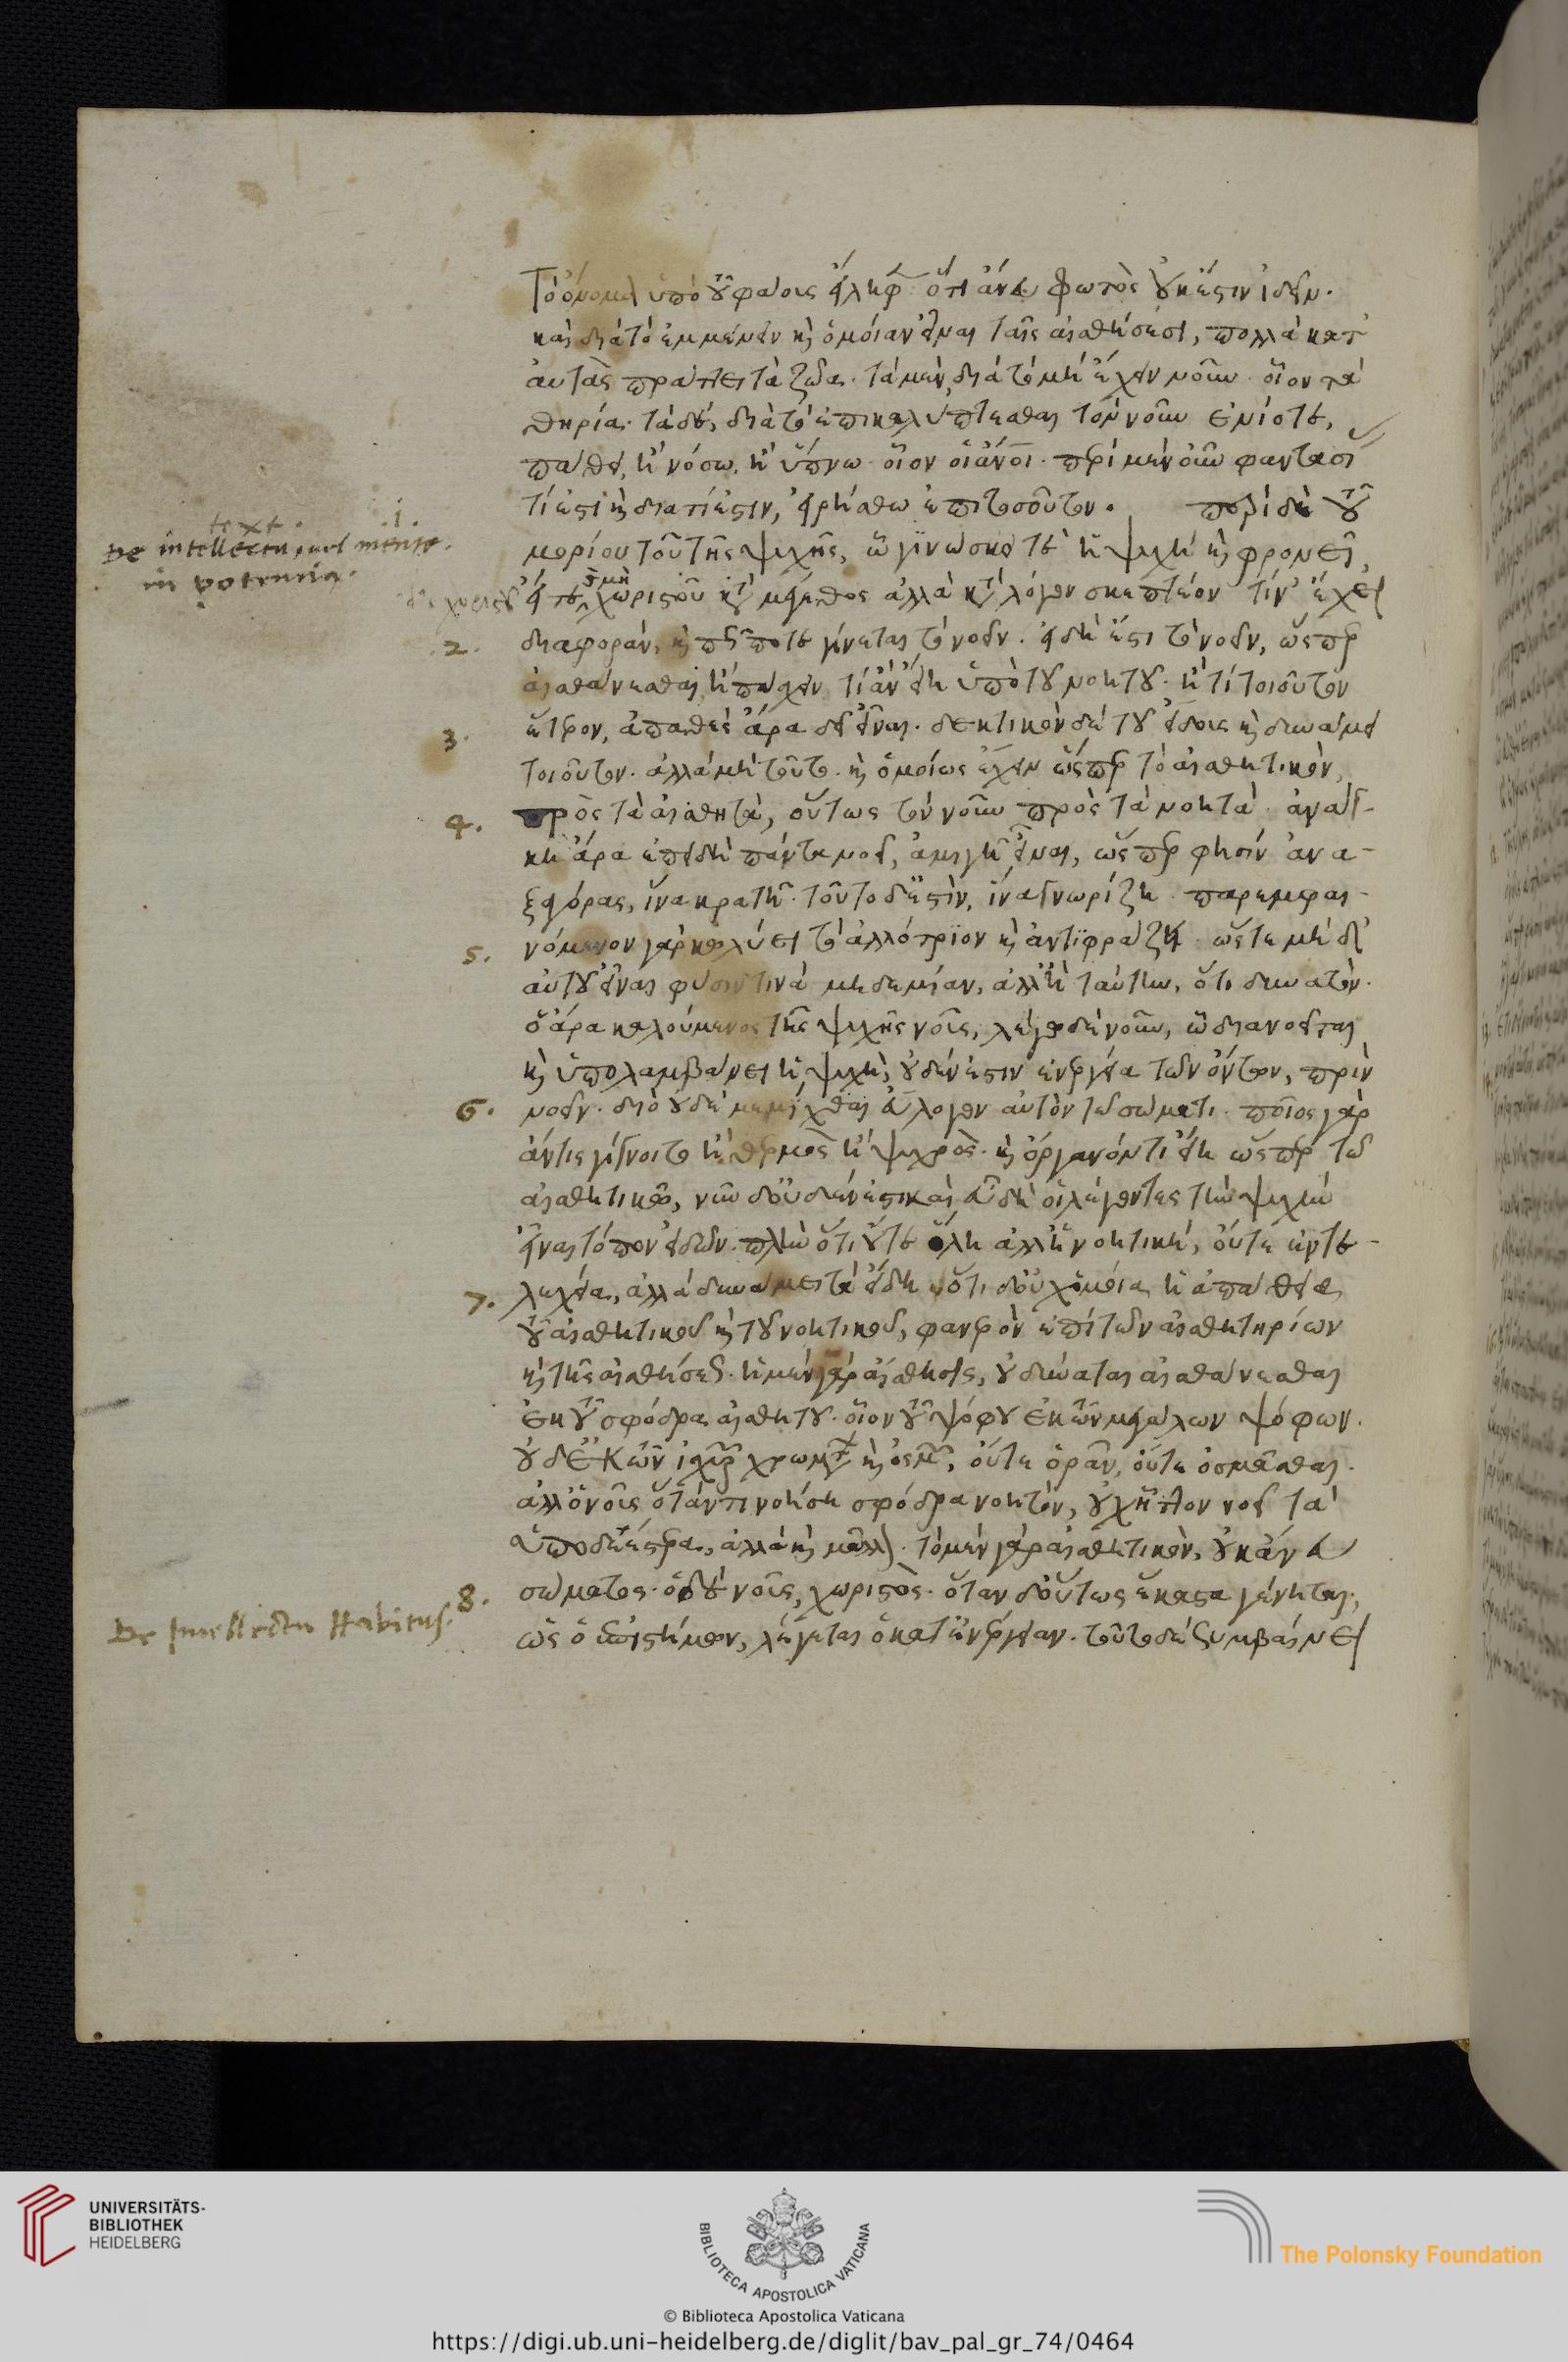 Τὸ ὄνομα ὑπὸ τοῦ φάους εἴληφεν ὅτι ἄνευ φωτὸς οὐκ ἔστιν ἰδεῖν.
καὶ διὰ τὸ ἐμμένειν καὶ ὁμοίαν εἶναι ταῖς αἰσθήσεσι, πολλὰ κατ'
αὐτὰς πράττει τὰ ζῶα. τὰ μὲν, διὰ τὸ μὴ ἔχειν νοῦν. οἷον τὰ
θηρία. τὰ δὲ, διὰ τὸ ἐπικαλύπτεσθαι τὸν νοῦν ἐνίοτε,
πάθει, ἢ νόσω, ἢ ὕπνω. οἷον οἱ ἄνοι. περὶ μὲν οὖν φαντασί
τί ἐστι καὶ διατί ἐστιν, εἰρήσθω ἐπιτοσοῦτον. περὶ δὲ τοῦ
text. .1.
De intellectu sive mente.
in potentia.
μορίου τοῦ τῆς ψυχῆς, ὧ γινώσκει τε ἡ ψυχὴ καὶ φρονεῖ,
χωριστοῦ κατὰ μέγεθος ἀλλὰ κατὰ λόγον σκεπτέον τίν' ἔχει
2. διαφορὰν, καὶ πῶς ποτε γίνεται τὸ νοεῖν. εἰ δή ἐστι τὸ νοεῖν, ὥσπερ
αἰσθάνεσθαι ἢ πάσχειν τὶ ἂν εἴη ὑπὸ τοῦ νοητοῦ. ἤ τι τοιοῦτον
3. ἕτερον, ἀπαθὲς ἄρα δεῖ εἶναι. δεκτικὸν δὲ τοῦ εἴδους καὶ δυνάμει
τοιοῦτον. ἀλλὰ μὴ τοῦτο. καὶ ὁμοίως ἔχειν ὥσπερ τὸ αἰσθητικὸν,
4. πρὸς τὰ αἰσθητὰ, οὕτως τὸν νοῦν πρὸς τὰ νοητά. ἀνάγ-
κη ἄρα ἐπειδὴ πάντα νοεῖ, ἀμιγῆ εἶναι, ὥσπερ φησὶν ἀνα-
ξαγόρας, ἵνα κρατῆ. τοῦτο δ' ἔστιν, ἵνα γνωρίζη. παρεμφαι-
5. νόμενον γὰρ κωλύει τὸ ἀλλότριον καὶ ἀντιφράζει. ὥστε μὴ δ'
αὐτοῦ εἶναι φύσιν τινὰ μηδεμίαν, ἀλλ' ἢ ταύτην, ὅτι δυνατόν.
ὁ ἄρα καλούμενος τῆς ψυχῆς νοῦς, λέγω δὲ νοῦν, ὧ διανοεῖται
καὶ ὑπολαμβάνει ἡ ψυχὴ, οὐδέν ἐστιν ἐνεργεία τῶν ὄντων, πρὶν
6. νοεῖν. διὸ οὐδὲ μεμίχθαι εὔλογον αὐτὸν τῶ σώματι. ποῖος γὰρ
ἄν τις γίγνοιτο ἢ θερμὸς ἢ ψυχρὸς. καὶ ὄργανόν τι εἴη ὥσπερ τῶ
αἰσθητικῶ, νῦν δ' οὐδέν ἐστι. καὶ εὖ δὴ οἱ λέγοντες τὴν ψυχὴν
εἶναι τόπον εἰδῶν. πλὴν ὅτι οὔτε ὅλη ἀλλ' ἡ νοητικὴ, οὔτε ἐντε-
λεχεία, ἀλλὰ δυνάμει τὰ εἴδη.
7. ὅτι δ' οὐχ ὁμοία ἡ ἀπάθεια
τοῦ αἰσθητικοῦ καὶ τοῦ νοητικοῦ, φανερὸν ἐπὶ τῶν αἰσθητηρίων
καὶ τῆς αἰσθήσεως. ἡ μὲν γὰρ αἴσθησις, οὐ δύναται αἰσθάνεσθαι
ἐκ τοῦ σφόδρα αἰσθητοῦ. οἷον τοῦ ψόφου ἐκ τῶν μεγάλων ψόφων.
οὐδ' ἐκ τῶν ἰσχυρῶν χρωμάτων καὶ ὀσμῶν, οὔτε ὁρᾶν, οὔτε ὀσμᾶσθαι.
ἀλλ' ὁ νοῦς ὅταν τι νοήση σφόδρα νοητὸν, οὐχ ἧττον νοεῖ τὰ
ὑποδεέστερα, ἀλλὰ καὶ μᾶλλον. τὸ μὲν γὰρ αἰσθητικὸν, οὐκ ἄνευ
8. σώματος. ὁ δὲ νοῦς, χωριστός. ὅταν δ' οὕτως ἕκαστα γένηται,
De Intellectu Habitus.
ὡς ὁ ἐπιστήμων, λέγεται ὁ κατ' ἐνέργειαν. τοῦτο δὲ συμβαίνει
UNIVERSITÄTS-
BIBLIOTHEK
HEIDELBERG
BIBLIOTECA APOSTOLICA VATICANA
The Polonsky Foundation
© Biblioteca Apostolica Vaticana
https://digi.ub.uni-heidelberg.de/diglit/bav_pal_gr_74/0464